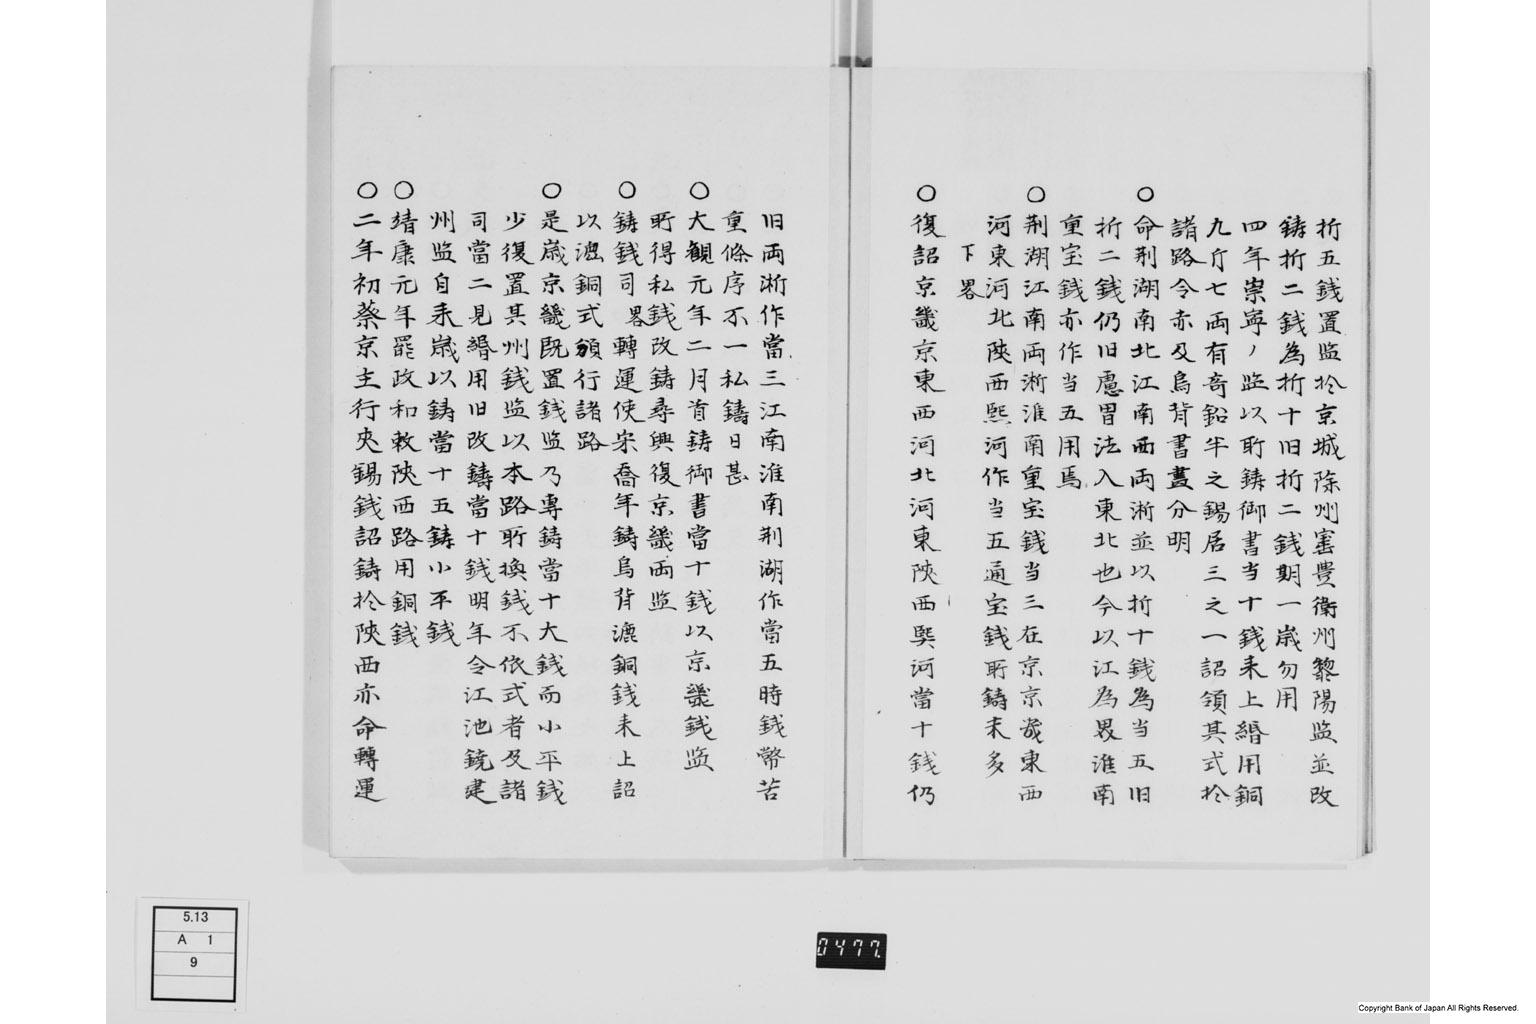 折五銭置监扵京城除州寚豊衛州黎陽监並改
鋳折二銭為折十旧折二銭期一歳勿用
四年崇寧ノ监以㪽鋳御書当十銭来上緡用銅
九斤七両有竒鉛半之錫居三之一詔領其式扵
諸路令赤及烏背書畫分明
○命荆湖南北江南西両淅並以折十銭為当五旧
折二銭仍旧慮冒法入東北也今以江為畧淮南
重宝銭亦作当五用焉
○荆湖江南両淅淮南重宝銭当三在京京畿東西
河東河北陝西熙河作当五通宝銭㪽鋳未多
下畧
○復詔京畿京東西河北河東陝西熙河當十銭仍
旧両淅作當三江南淮南荆湖作當五時銭幣苦
重條序不一私鑄日甚
○大観元年二月首鋳御書當十銭以京畿銭监
㪽得私銭改鋳尋興復京畿両监
○鋳銭司畧轉運使宋喬年鋳烏背漉銅銭来上詔
以漉銅式頒行諸路
○是歳京畿既置銭监乃専鋳當十大銭而小平銭
少復置其州銭监以本路㪽換銭不依式者及諸
司當二見緡用旧改鋳當十銭明年令江池鐃建
州监自来歳以鋳當十五鋳小平銭
○靖康元年罷政和敕陝西路用銅銭
○二年初蔡京主行夾錫銭詔鋳扵陝西亦命轉運
5.13
A 1
9
0477.
Copyright Bank of Japan All Rights Reserved.